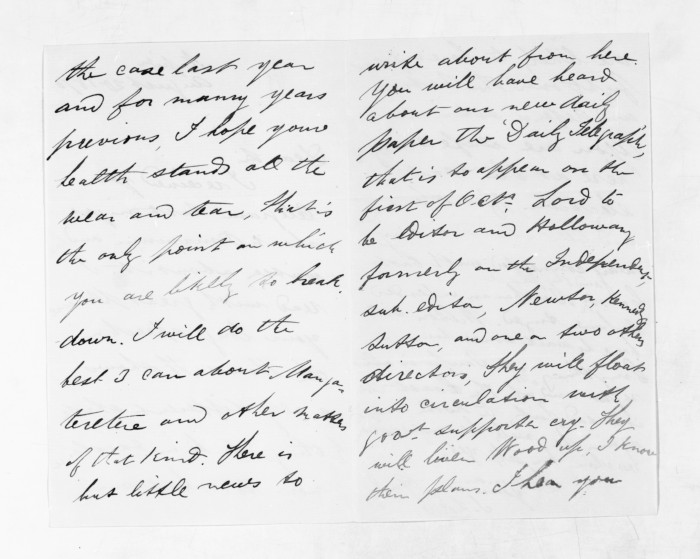 the case last year
and for many years
previous, I hope your
health stands all the
wear and tear, that is
the only point on which
you are likely to break
down. I will do the
best I can about Manga-
teretere and other matters
of that kind. There is
but little news to
write about from here.
You will have heard
about our new daily
paper the "Daily Telegraph",
that is to appear on the
first of Octr. Lord to
be editor and Holloway
formerly on the Independent,
sub. editor, Newton, Kennedy
Sutton, and one or two others
directors, they will float
into circulation with
govt. supporter cry. They
will liven Wood up, I know
their plans. I hear you